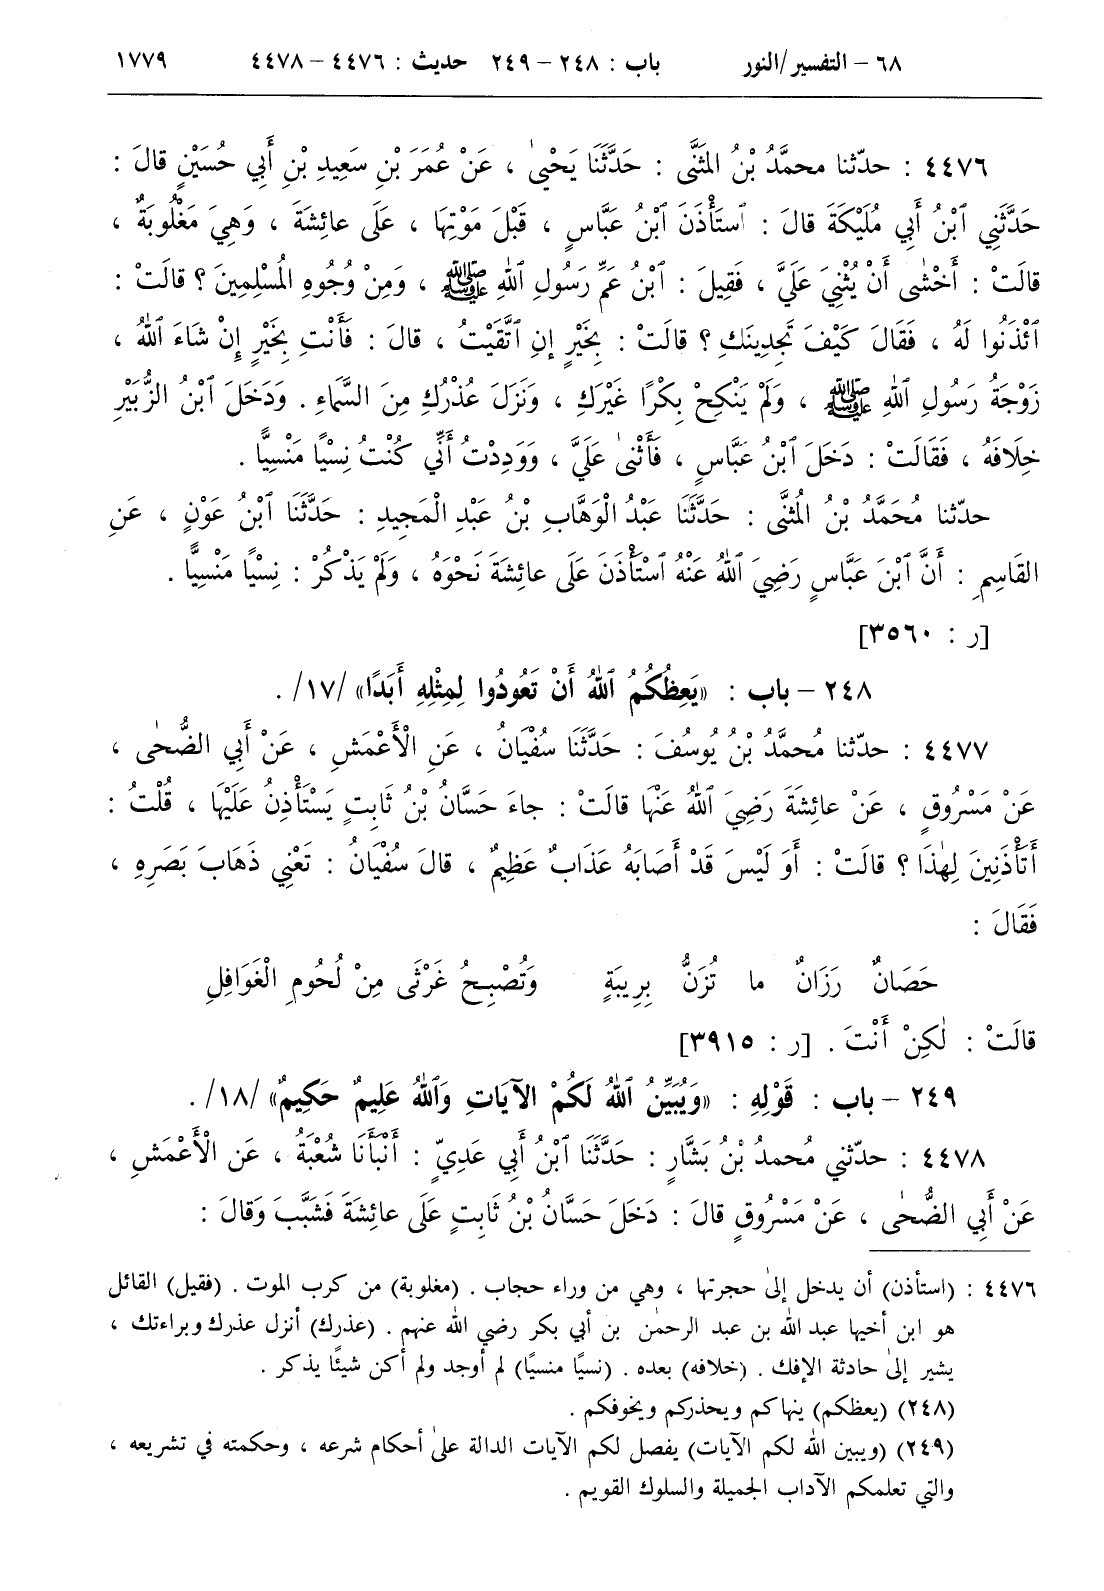 ٦٨ – التفسير/النور باب : ٢٤٨ – ٢٤٩ حديث : ٤٤٧٦ – ٤٤٧٨ ١٧٧٩
٤٤٧٦ : حدّثنا محمَّدُ بْنُ المَثَنَّى : حَدَّثَنَا يَحْيىٰ ، عَنْ عُمَرَ بْنِ سَعِيدِ بْنِ أَبِي حُسَيْنٍ قالَ :
حَدَّثَنِي ٱبْنُ أَبِي مُلَيْكَةَ قالَ : ٱستَأْذَنَ ٱبْنُ عَبَّاسٍ ، قَبْلَ مَوْتِهَا ، عَلَى عائِشَةَ ، وَهِيَ مَغْلُوبَةٌ ،
قالَتْ : أَخْشٰى أَنْ يُثْنِيَ عَلَيَّ ، فَقِيلَ : ٱبْنُ عَمِّ رَسُولِ ٱللهِ ﷺ ، وَمِنْ وُجُوهِ الْمُسْلِمِينَ ؟ قالَتْ :
ٱئْذَنُوا لَهُ ، فَقَالَ كَيْفَ تَجِدِينَكِ ؟ قالَتْ : بِخَيْرٍ إِنِ ٱتَّقَيْتُ ، قالَ : فَأَنْتِ بِخَيْرٍ إِنْ شَاءَ ٱللهُ ،
زَوْجَةُ رَسُولِ ٱللهِ ﷺ ، وَلَمْ يَنْكِحْ بِكْرًا غَيْرَكِ ، وَنَزَلَ عُذْرُكِ مِنَ السَّمَاءِ . وَدَخَلَ ٱبْنُ الزُّبَيْرِ
خِلَافَهُ ، فَقَالَتْ : دَخَلَ ٱبْنُ عَبَّاسٍ ، فَأَثْنىٰ عَلَيَّ ، وَوَدِدْتُ أَنِّي كُنْتُ نِسْيًا مَنْسِيًّا .
حدّثنا مُحَمَّدُ بْنُ المُثنَّى : حَدَّثَنَا عَبْدُ الْوَهَّابِ بْنُ عَبْدِ الْمَجِيدِ : حَدَّثَنَا ٱبْنُ عَوْنٍ ، عَنِ
القَاسِمِ : أَنَّ ٱبْنَ عَبَّاسٍ رَضِيَ ٱللهُ عَنْهُ ٱسْتَأْذَنَ عَلَى عائِشَةَ نَحْوَهُ ، وَلَمْ يَذْكُرْ : نِسْيًا مَنْسِيًّا .
[ر : ٣٥٦٠]
٢٤٨ – باب : «يَعِظُكُمُ ٱللهُ أَنْ تَعُودُوا لِمِثْلِهِ أَبَدًا» /١٧/ .
٤٤٧٧ : حدّثنا مُحمَّدُ بْنُ يُوسُفَ : حَدَّثَنَا سُفْيَانُ ، عَنِ الْأَعْمَشِ ، عَنْ أَبِي الضُّحٰى ،
عَنْ مَسْرُوقٍ ، عَنْ عائِشَةَ رَضِيَ ٱللهُ عَنْهَا قالَتْ : جاءَ حَسَّانُ بْنُ ثَابِتٍ يَسْتَأْذِنُ عَلَيْهَا ، قُلْتُ :
أَتَأْذَنِينَ لِهٰذَا ؟ قالَتْ : أَوَ لَيْسَ قَدْ أَصَابَهُ عَذَابٌ عَظِيمٌ ، قالَ سُفْيَانُ : تَعْنِي ذَهَابَ بَصَرِهِ ،
فَقَالَ :
حَصَانٌ رَزَانٌ ما تُزَنُّ بِرِيبَةٍ وَتُصْبِحُ غَرْثَى مِنْ لُحُومِ الْغَوَافِلِ
قالَتْ : لٰكِنْ أَنْتَ . [ر : ٣٩١٥]
٢٤٩ – باب : قَوْلِهِ : «وَيُبَيِّنُ ٱللهُ لَكُمْ الآيَاتِ وَٱللهُ عَلِيمٌ حَكِيمٌ» /١٨/ .
٤٤٧٨ : حدّثني مُحمدُ بْنُ بَشَّارٍ : حَدَّثَنَا ٱبْنُ أَبِي عَدِيٍّ : أَنْبَأَنَا شُعْبَةُ ، عَنِ الْأَعْمَشِ ،
عَنْ أَبِي الضُّحٰى ، عَنْ مَسْرُوقٍ قالَ : دَخَلَ حَسَّانُ بْنُ ثَابِتٍ عَلَى عائِشَةَ فَشَبَّبَ وَقالَ :
٤٤٧٦ : (استأذن) أن يدخل إلىٰ حجرتها ، وهي من وراء حجاب . (مغلوبة) من كرب الموت . (فقيل) القائل
هو ابن أخيها عبد الله بن عبد الرحمٰن بن أبي بكر رضي الله عنهم . (عذرك) أنزل عذرك وبراءتك ،
يشير إلىٰ حادثة الإفك . (خلافه) بعده . (نسيًا منسيًا) لم أوجد ولم أكن شيئًا يذكر .
(٢٤٨) (يعظكم) ينهاكم ويحذركم ويخوفكم .
(٢٤٩) (ويبين الله لكم الآيات) يفصل لكم الآيات الدالة علىٰ أحكام شرعه ، وحكمته في تشريعه ،
والتي تعلمكم الآداب الجميلة والسلوك القويم .